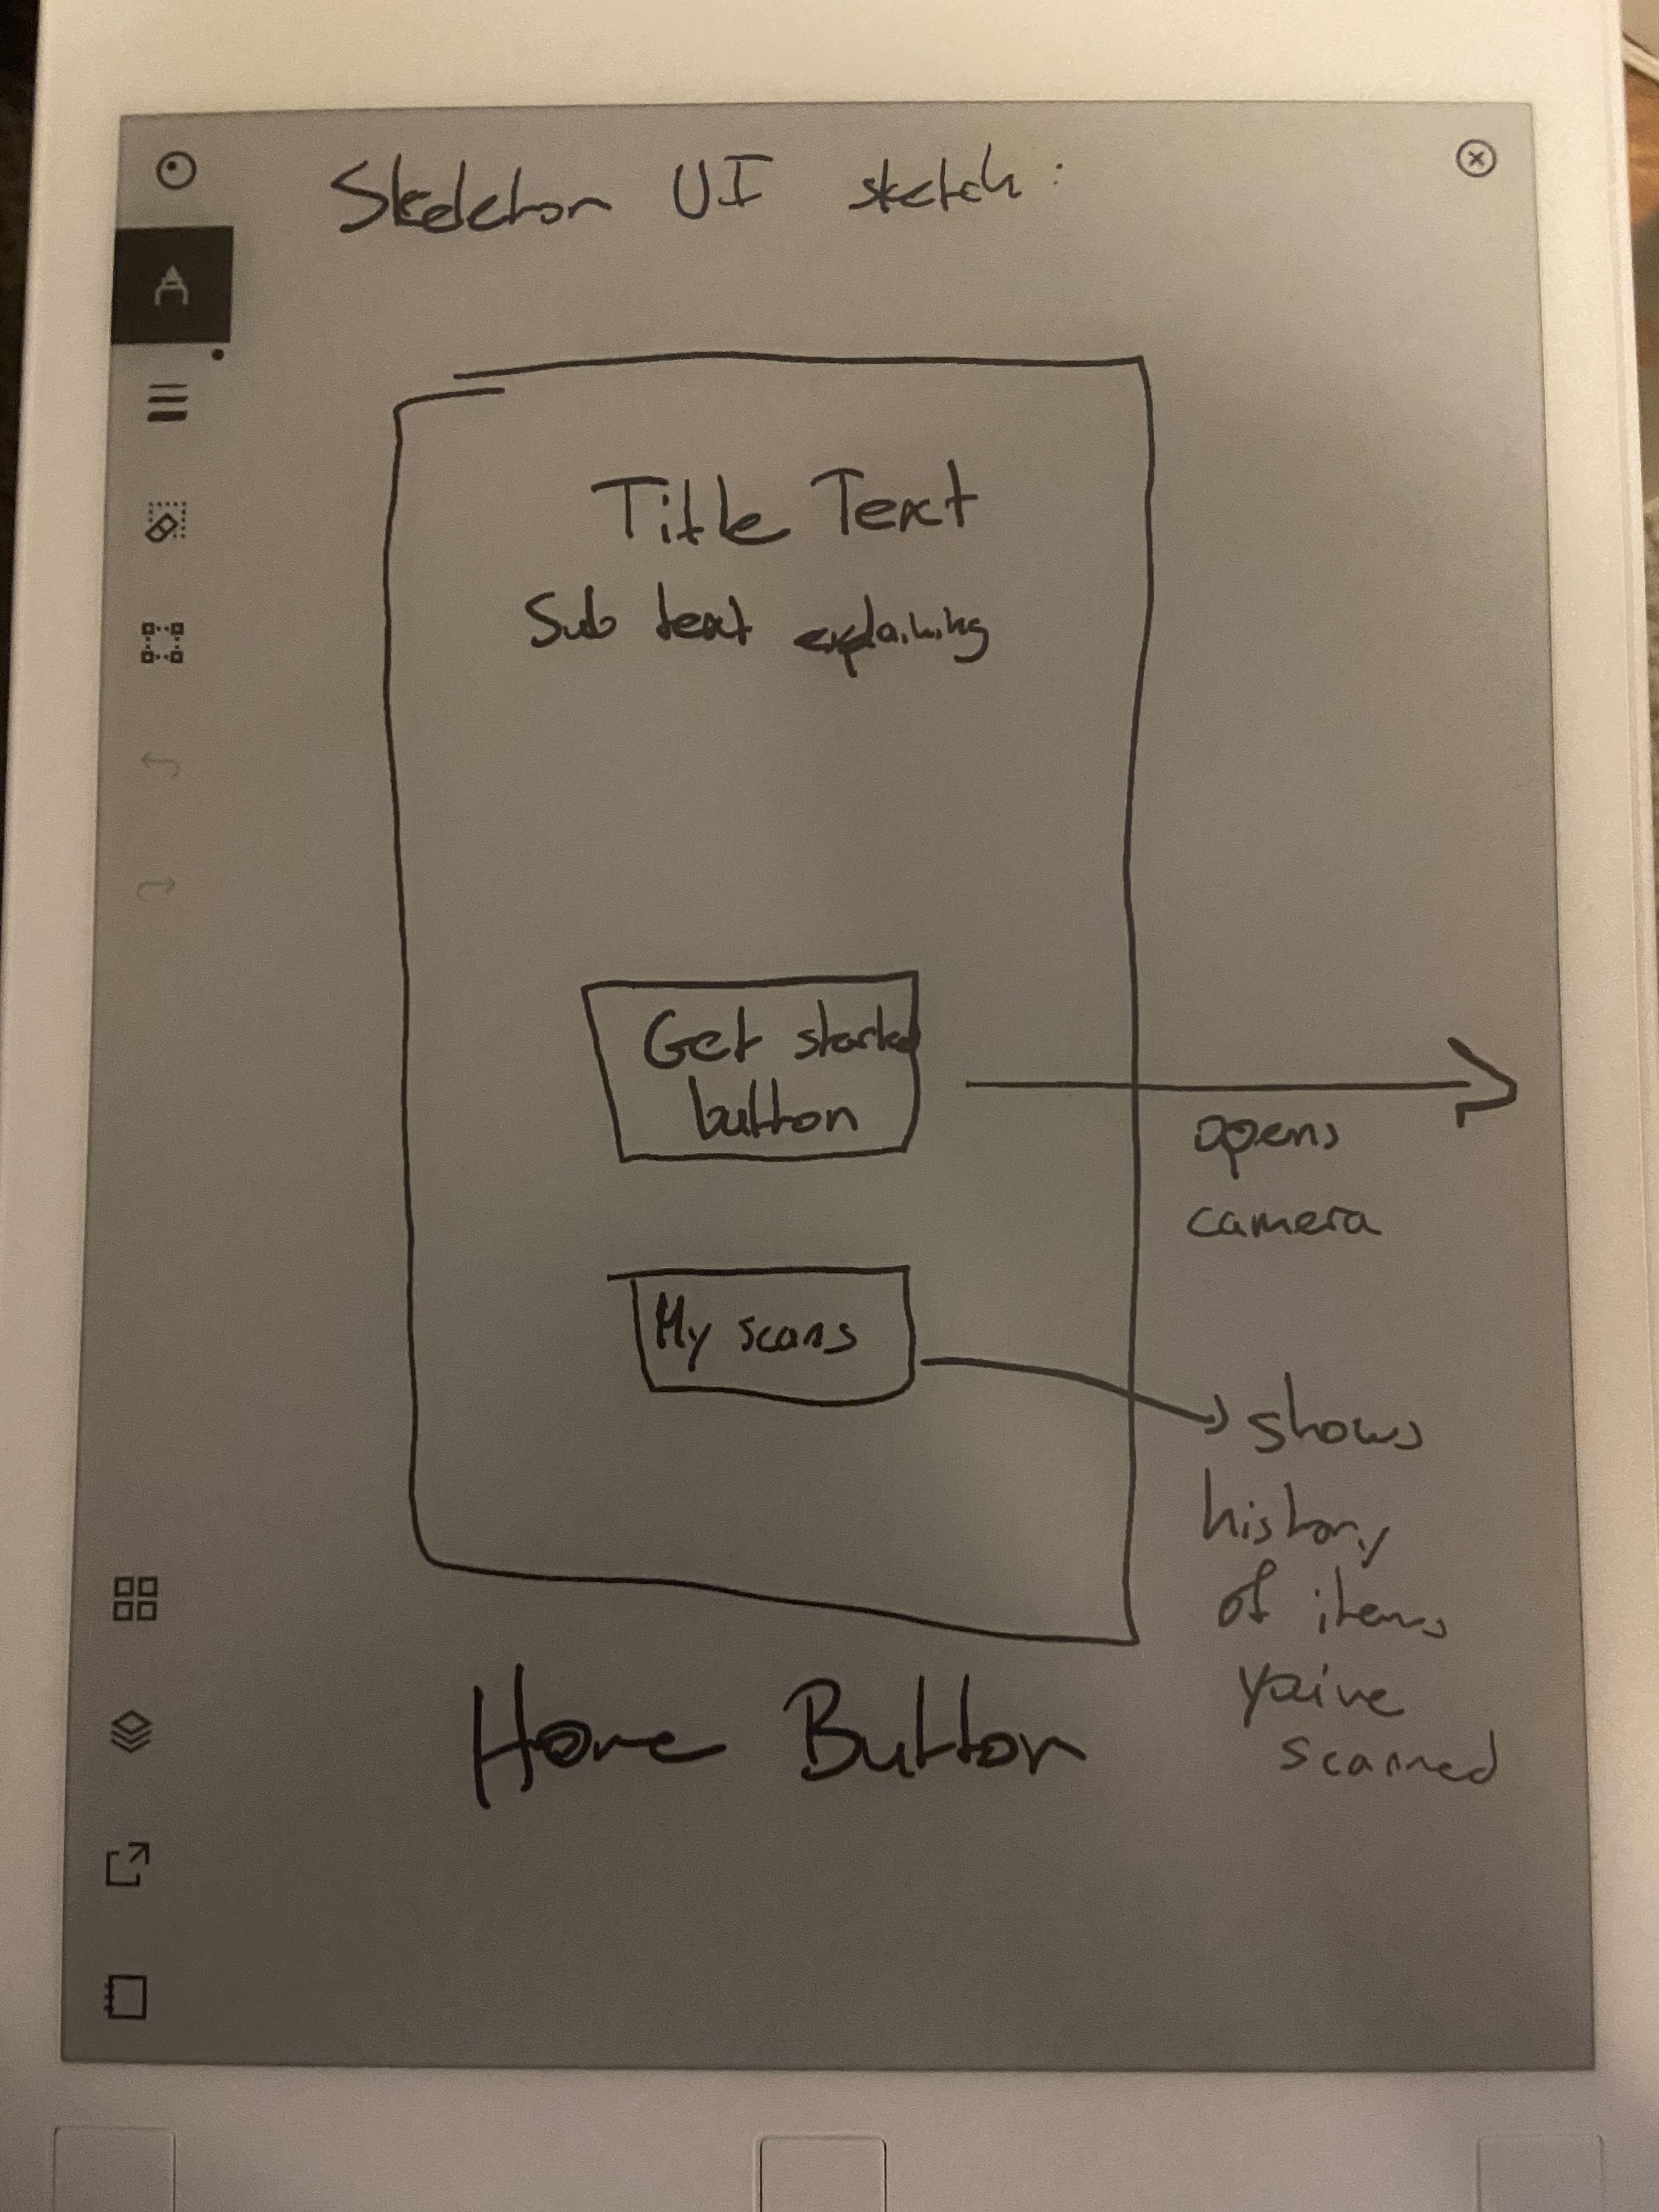 Skeleton UI sketch:
Title Text
Sub text explaining
Get started
button
opens
camera
My scans
shows
history
of items
you've
scanned
Home Button